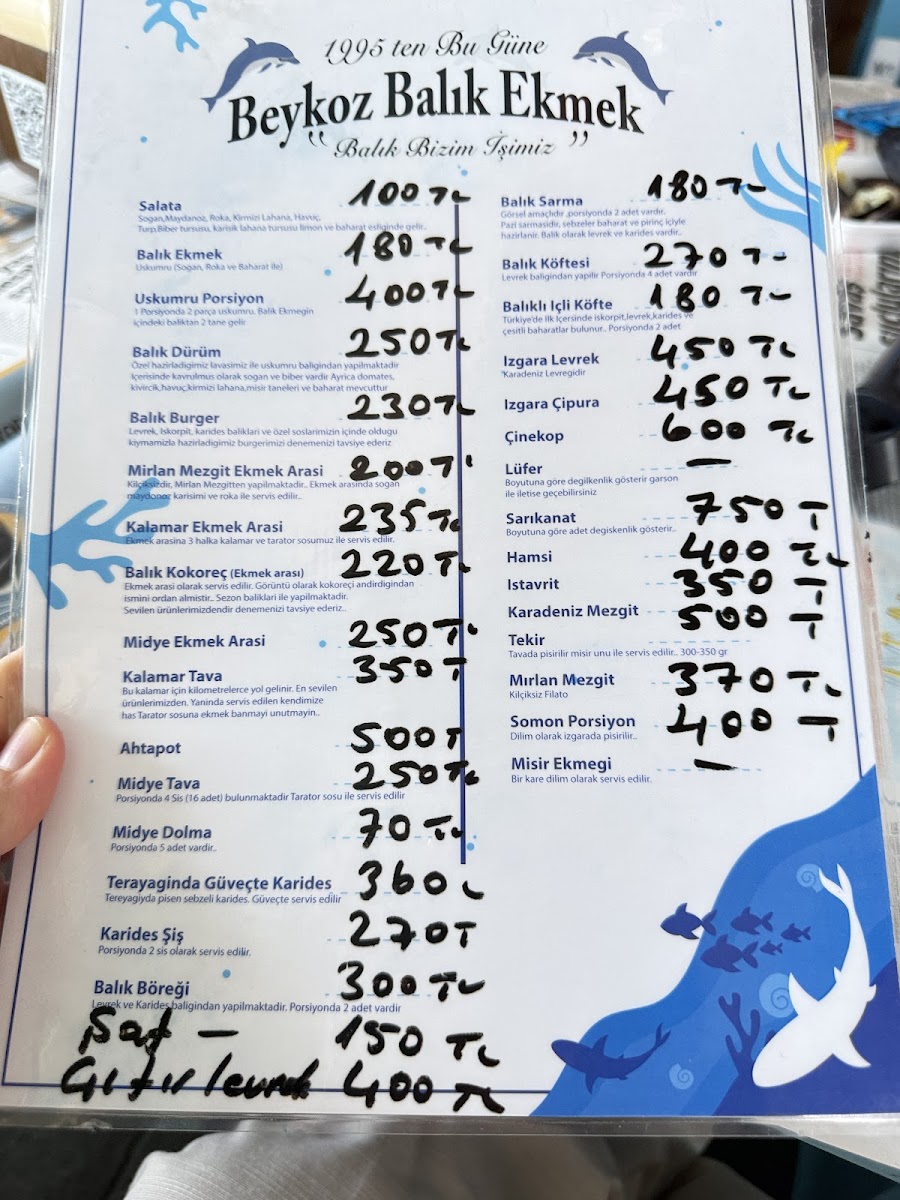 1995 ten Bu Güne
Beykoz Balık Ekmek
"Balık Bizim İşimiz"
Salata 100 TL
Sogan,Maydanoz, Roka, Kirmizi Lahana, Havuç,
Turp,Biber tursusu, karisik lahana tursusu limon ve baharat esliginde gelir.
Balık Ekmek 180 TL
Uskumru (Sogan, Roka ve Baharat ile)
Uskumru Porsiyon 400 TL
1 Porsiyonda 2 parça uskumru. Balik Ekmegin
içindeki baliktan 2 tane gelir
Balık Dürüm 250 TL
Özel hazirladigimiz lavasimiz ile uskumru baligindan yapilmaktadir
Içerisinde kavrulmus olarak sogan ve biber vardir Ayrica domates,
kivircik,havuç,kirmizi lahana,misir taneleri ve baharat mevcuttur
Balık Burger 230 TL
Levrek, Iskorpit, karides baliklari ve özel soslarimizin içinde oldugu
kiymamizla hazirladigimiz burgerimizi denemenizi tavsiye ederiz
Mirlan Mezgit Ekmek Arasi 200 T
Kilçiksizdir, Mirlan Mezgitten yapilmaktadir.. Ekmek arasinda sogan
maydonoz karisimi ve roka ile servis edilir..
Kalamar Ekmek Arasi 235 TL
Ekmek arasina 3 halka kalamar ve tarator sosumuz ile servis edilir.
Balık Kokoreç (Ekmek arası) 220 TL
Ekmek arasi olarak servis edilir. Görüntü olarak kokoreçi andirdigindan
ismini ordan almistir.. Sezon balıklari ile yapilmaktadir.
Sevilen ürünlerimizdendir denemenizi tavsiye ederiz..
Midye Ekmek Arasi 250 TL
Kalamar Tava 350 T
Bu kalamar için kilometrelerce yol gelinir. En sevilen
ürünlerimizden. Yaninda servis edilen kendimize
has Tarator sosuna ekmek banmayi unutmayin..
Ahtapot 500 T
Midye Tava 250 TL
Porsiyonda 4 Sis (16 adet) bulunmaktadir Tarator sosu ile servis edilir
Midye Dolma 70 TL
Porsiyonda 5 adet vardir..
Terayaginda Güveçte Karides 360 L
Tereyagiyda pisen sebzeli karides. Güveçte servis edilir
Karides Şiş 270 T
Porsiyonda 2 sis olarak servis edilir.
Balık Böreği 300 TL
Levrek ve Karides baligindan yapilmaktadir. Porsiyonda 2 adet vardir
– 150 TL
Çıtır levrek 400 TL
Balık Sarma 180 TL
Görsel amaçlıdır ,porsiyonda 2 adet vardir.
Pazi sarmasidir, sebzeler baharat ve pirinç içiyle
hazirlanir. Balik olarak levrek ve karides vardir..
Balık Köftesi 270 T-
Levrek baligindan yapilir Porsiyonda 4 adet vardir
Balıklı Içli Köfte 180 T-
Türkiye'de Ilk Içersinde iskorpit,levrek,karides ve
çesitli baharatlar bulunur.. Porsiyonda 2 adet
Izgara Levrek 450 TL
*Karadeniz Levregidir
Izgara Çipura 450 TL
Çinekop 600 TL
Lüfer –
Boyutuna göre degilkenlik gösterir garson
ile iletise geçebilirsiniz
Sarıkanat 750 T
Boyutuna göre adet degiskenlik gösterir..
Hamsi 400 TL
Istavrit 350 T
Karadeniz Mezgit 500 T
Tekir
Tavada pisirilir misir unu ile servis edilir.. 300-350 gr
Mırlan Mezgit 370 TL
Kilçiksiz Filato
Somon Porsiyon 400 T
Dilim olarak izgarada pisirilir..
Misir Ekmegi –
Bir kare dilim olarak servis edilir.